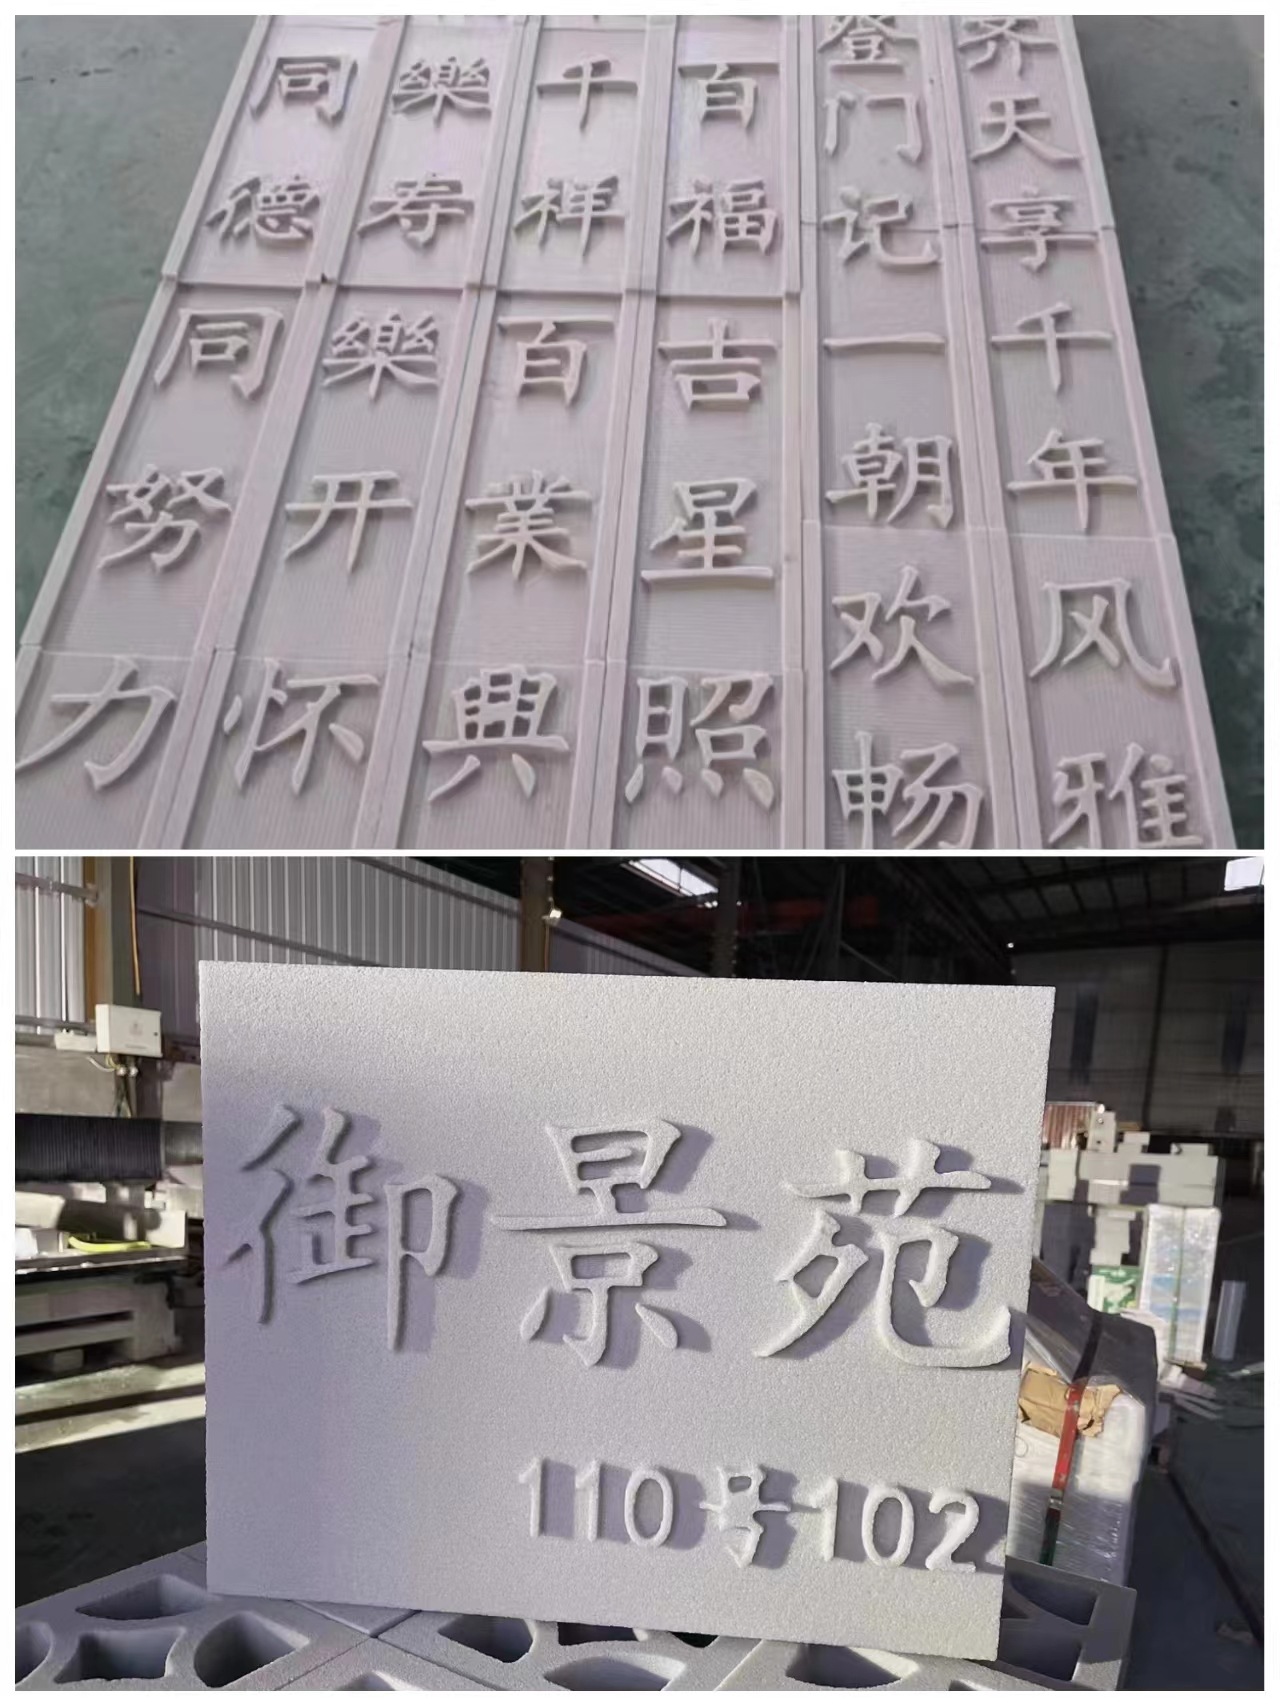 齐天享千年风雅
登门记一朝欢畅
百福吉星照
千祥百業興
樂寿樂开怀
同德同努力
御景苑
110号102